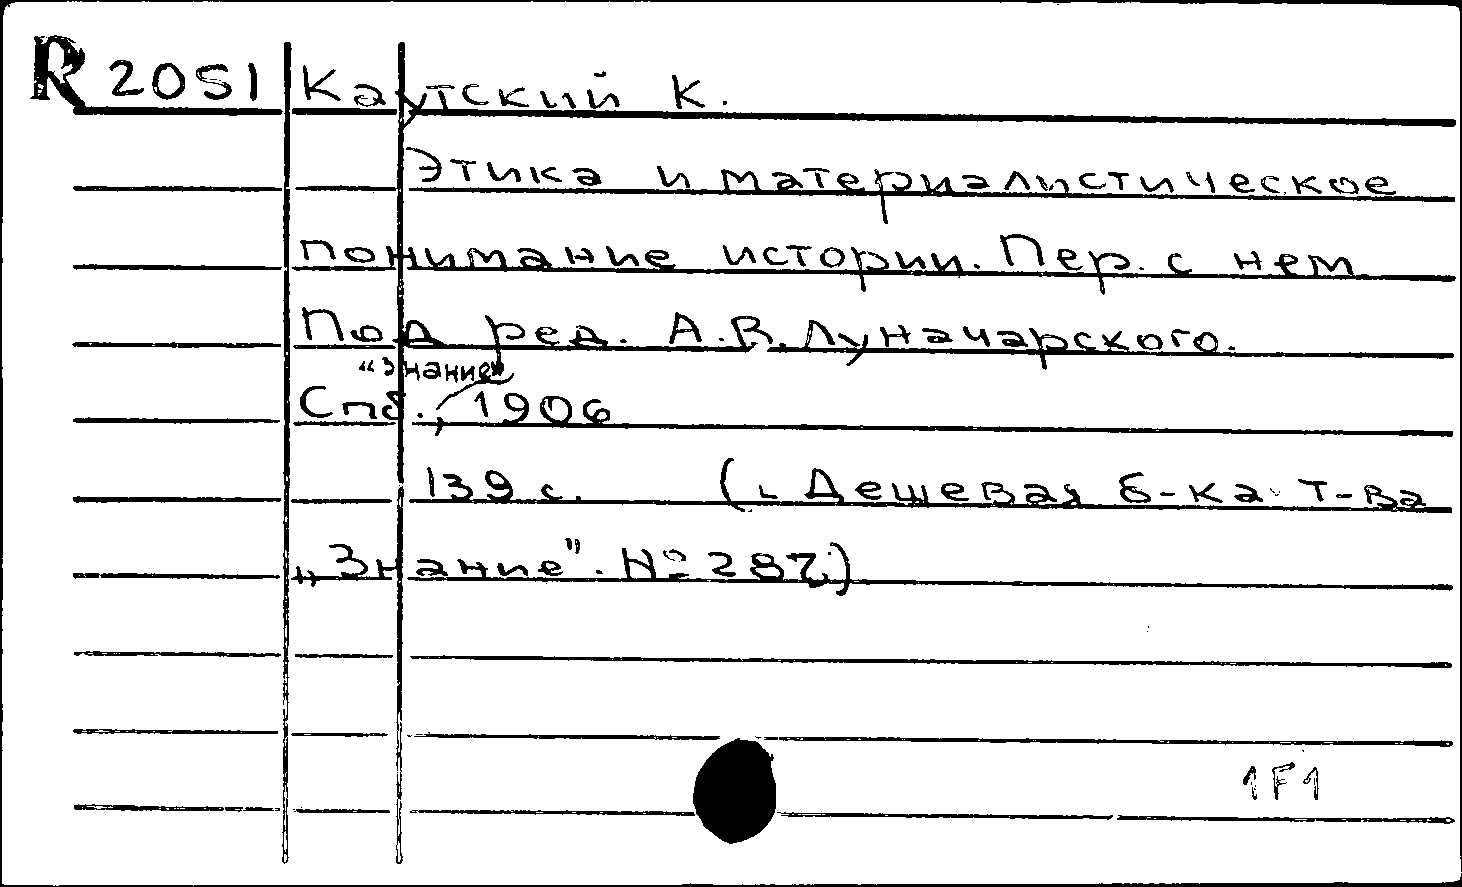 R 2051 Каутский К.
Этика и материалистическое
понимание истории. Пер. с нем
Под ред. А.В. Луначарского.
"Знание"
Спб., 1906
139 с. (Дешевая б-ка т-ва
„Знание". № 287)
1F1